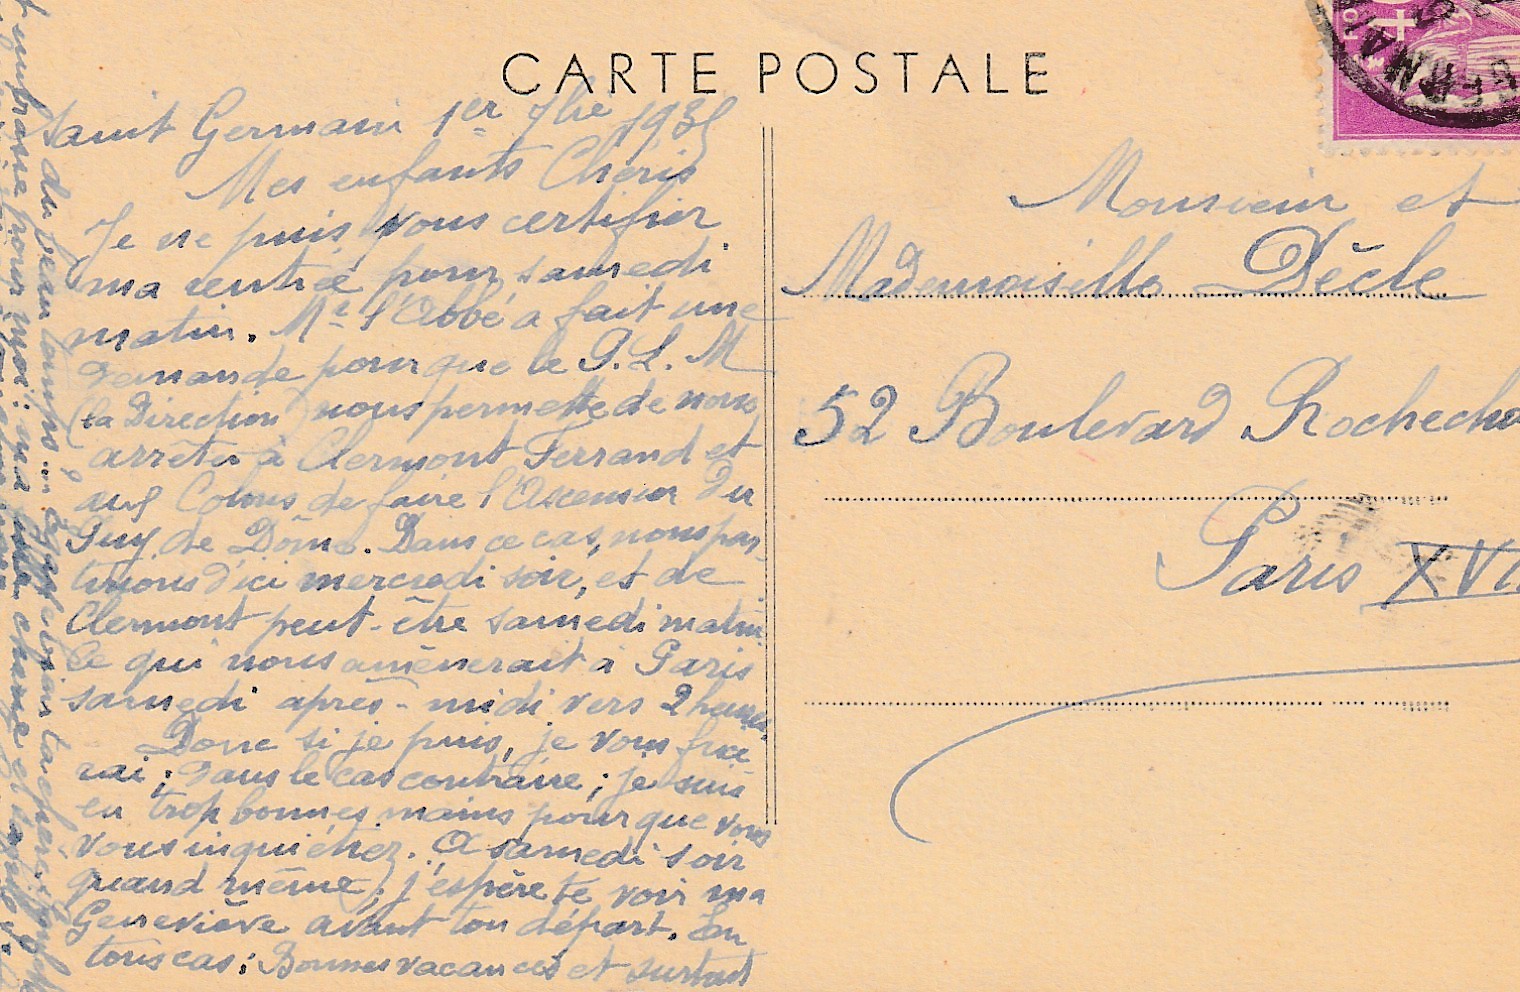 CARTE POSTALE
Saint Germain 1er 7bre 1935
Mes enfants Chéris
Je ne puis vous certifier
ma rentrée pour samedi
matin. Mr l'Abbé a fait une
demande pour que le P. L. M
(la Direction) nous permette de nous
arrêter à Clermont Ferrand et
aux Colons de faire l'Ascension du
Puy de Dôme. Dans ce cas, nous par
tirions d'ici mercredi soir, et de
Clermont peut-être samedi matin
ce qui nous amènerait à Paris
samedi après-midi vers 2 heures.
Donc si je puis, je vous
rai; dans le cas contraire; je suis
en trop bonnes mains pour que vous
vous inquiétiez. A samedi soir
quand même, j'espère te voir ma
Geneviève avant ton départ. En
tous cas: Bonnes vacances et surtout
du beau temps
embrasse pour moi
Monsieur et
Mademoiselle Dècle
52 Boulevard Rochechou
Paris XVII